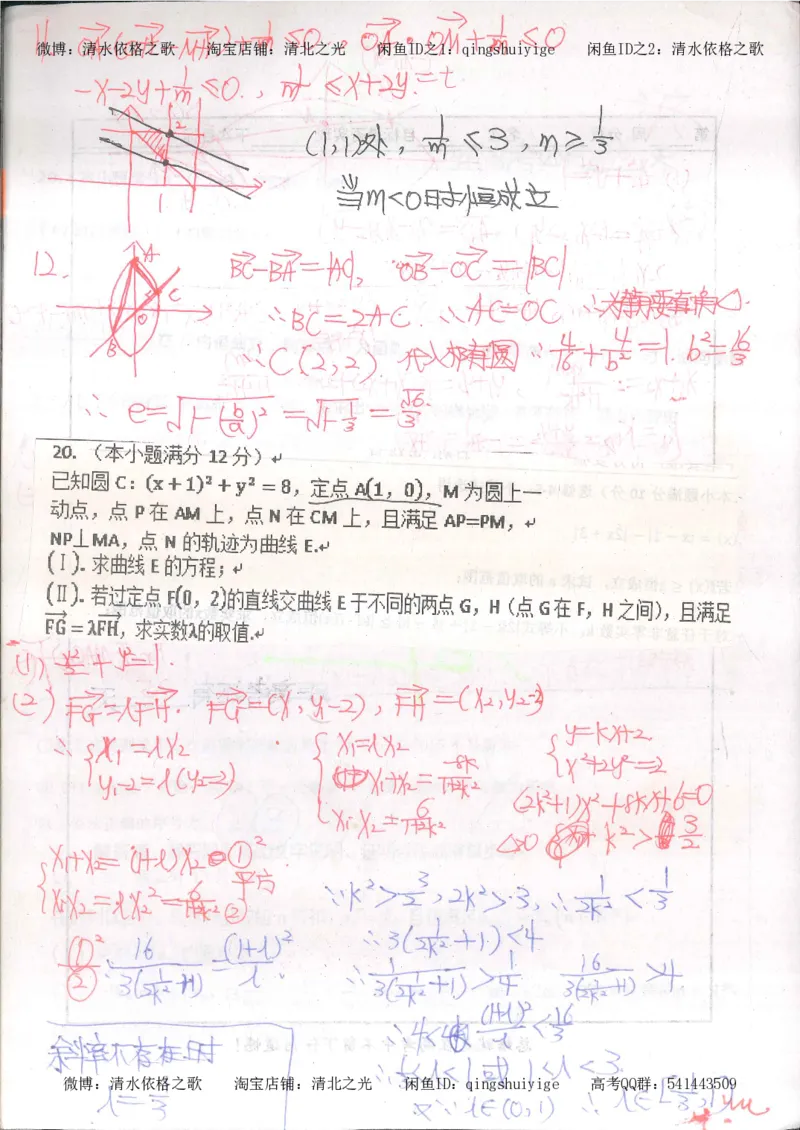 微博：清水依格之歌 淘宝店铺：清北之光 闲鱼ID之1：qingshuiyige 闲鱼ID之2：清水依格之歌
-x-2y+1/m≤0, 1/m≤x+2y=t
(1,1)处, 1/m≤3, m≥1/3
当m<0时恒成立
12.
A
C
O
B
BC-BA=|AC|, OB-OC=|BC|
∴BC=2AC. ∴AC=OC
∴C(2,2) 代入椭圆 ∴4/16+4/b²=1. b²=16/3
∴e=√(1-(b/a)²)=√(1-1/3)=√6/3
20. （本小题满分12分）
已知圆C：(x+1)²+y²=8，定点A(1，0)，M为圆上一
动点，点P在AM上，点N在CM上，且满足AP=PM，
NP⊥MA，点N的轨迹为曲线E.
(Ⅰ). 求曲线E的方程；
(Ⅱ). 若过定点F(0，2)的直线交曲线E于不同的两点G，H（点G在F，H之间），且满足
FG=λFH，求实数λ的取值.
(1) x²/2+y²=1.
(2) FG=λFH. FG=(x₁,y₁-2), FH=(x₂,y₂-2)
∴{x₁=λx₂
y₁-2=λ(y₂-2)
{x₁=λx₂
x₁+x₂=-8k/1+2k²
x₁x₂=6/1+2k²
{y=kx+2
x²+2y²=2
(2k²+1)x²+8kx+6=0
△>0 k²>3/2
{x₁+x₂=(1+λ)x₂ ①
平方
x₁x₂=λx₂²=6/1+2k² ②
①²/② ∴16/3(1/2k²+1)=(1+λ)²/λ
∵k²>3/2, 2k²>3, ∴1/2k²<1/3
∴3(1/2k²+1)<4
∴1/3(1/2k²+1)>1/4 16/3(1/2k²+1)>4
∴4<(1+λ)²/λ<16/3
∴1/3<λ<1或1<λ<3
又∵λ∈(0,1) ∴λ∈[1/3,1)
斜率不存在时
λ=1/3
微博：清水依格之歌 淘宝店铺：清北之光 闲鱼ID：qingshuiyige 高考QQ群：541443509